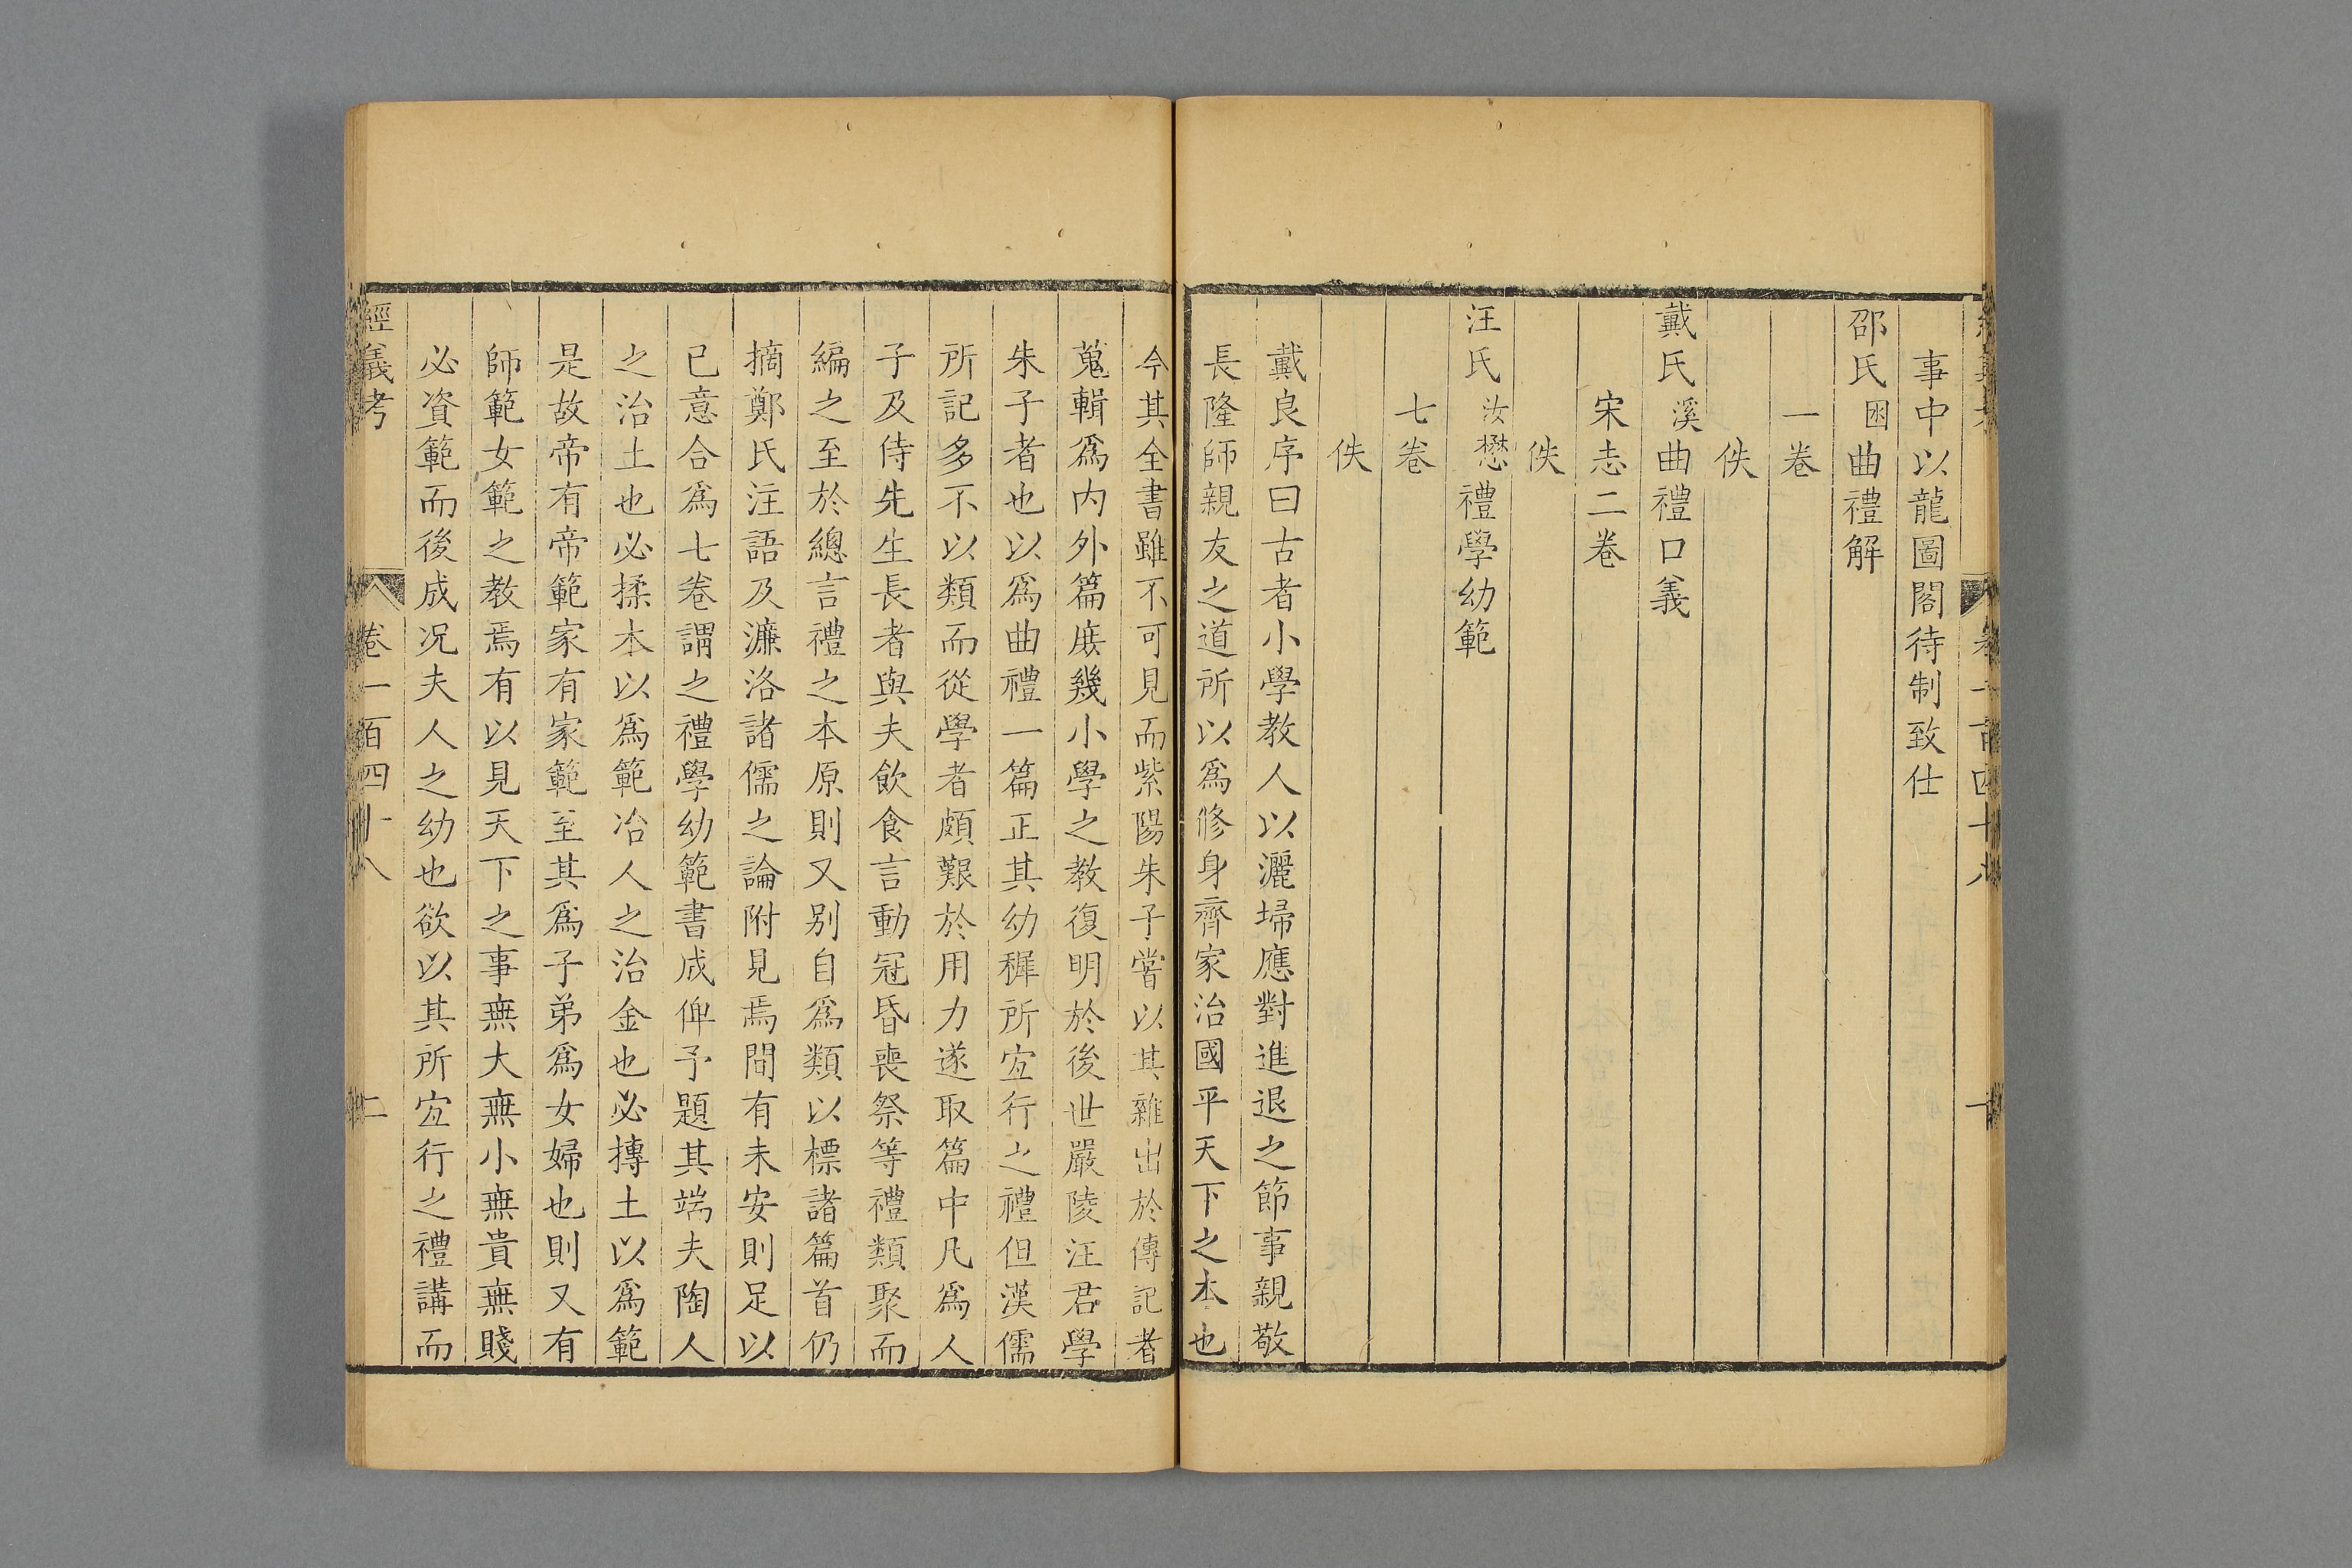 事中以龍圖閣待制致仕
邵氏囦曲禮解
一卷
佚
戴氏溪曲禮口義
宋志二卷
佚
汪氏汝懋禮學幼範
七卷
佚
戴良序曰古者小學教人以灑埽應對進退之節事親敬
長隆師親友之道所以爲脩身齊家治國平天下之本也
今其全書雖不可見而紫陽朱子嘗以其雜出於傳記者
蒐輯爲内外篇庶幾小學之教復明於後世嚴陵汪君學
朱子者也以爲曲禮一篇正其幼穉所宐行之禮但漢儒
所記多不以類而從學者頗艱於用力遂取篇中凡爲人
子及侍先生長者與夫飲食言動冠昏喪祭等禮類聚而
編之至於總言禮之本原則又别自爲類以標諸篇首仍
摘鄭氏注語及濂洛諸儒之論附見焉間有未安則足以
已意合爲七卷謂之禮學幼範書成俾予題其端夫陶人
之治土也必揉本以爲範冶人之治金也必摶土以爲範
是故帝有帝範家有家範至其爲子弟爲女婦也則又有
師範女範之教焉有以見天下之事無大無小無貴無賤
必資範而後成况夫人之幼也欲以其所宐行之禮講而
經義考
卷一百四十八
二